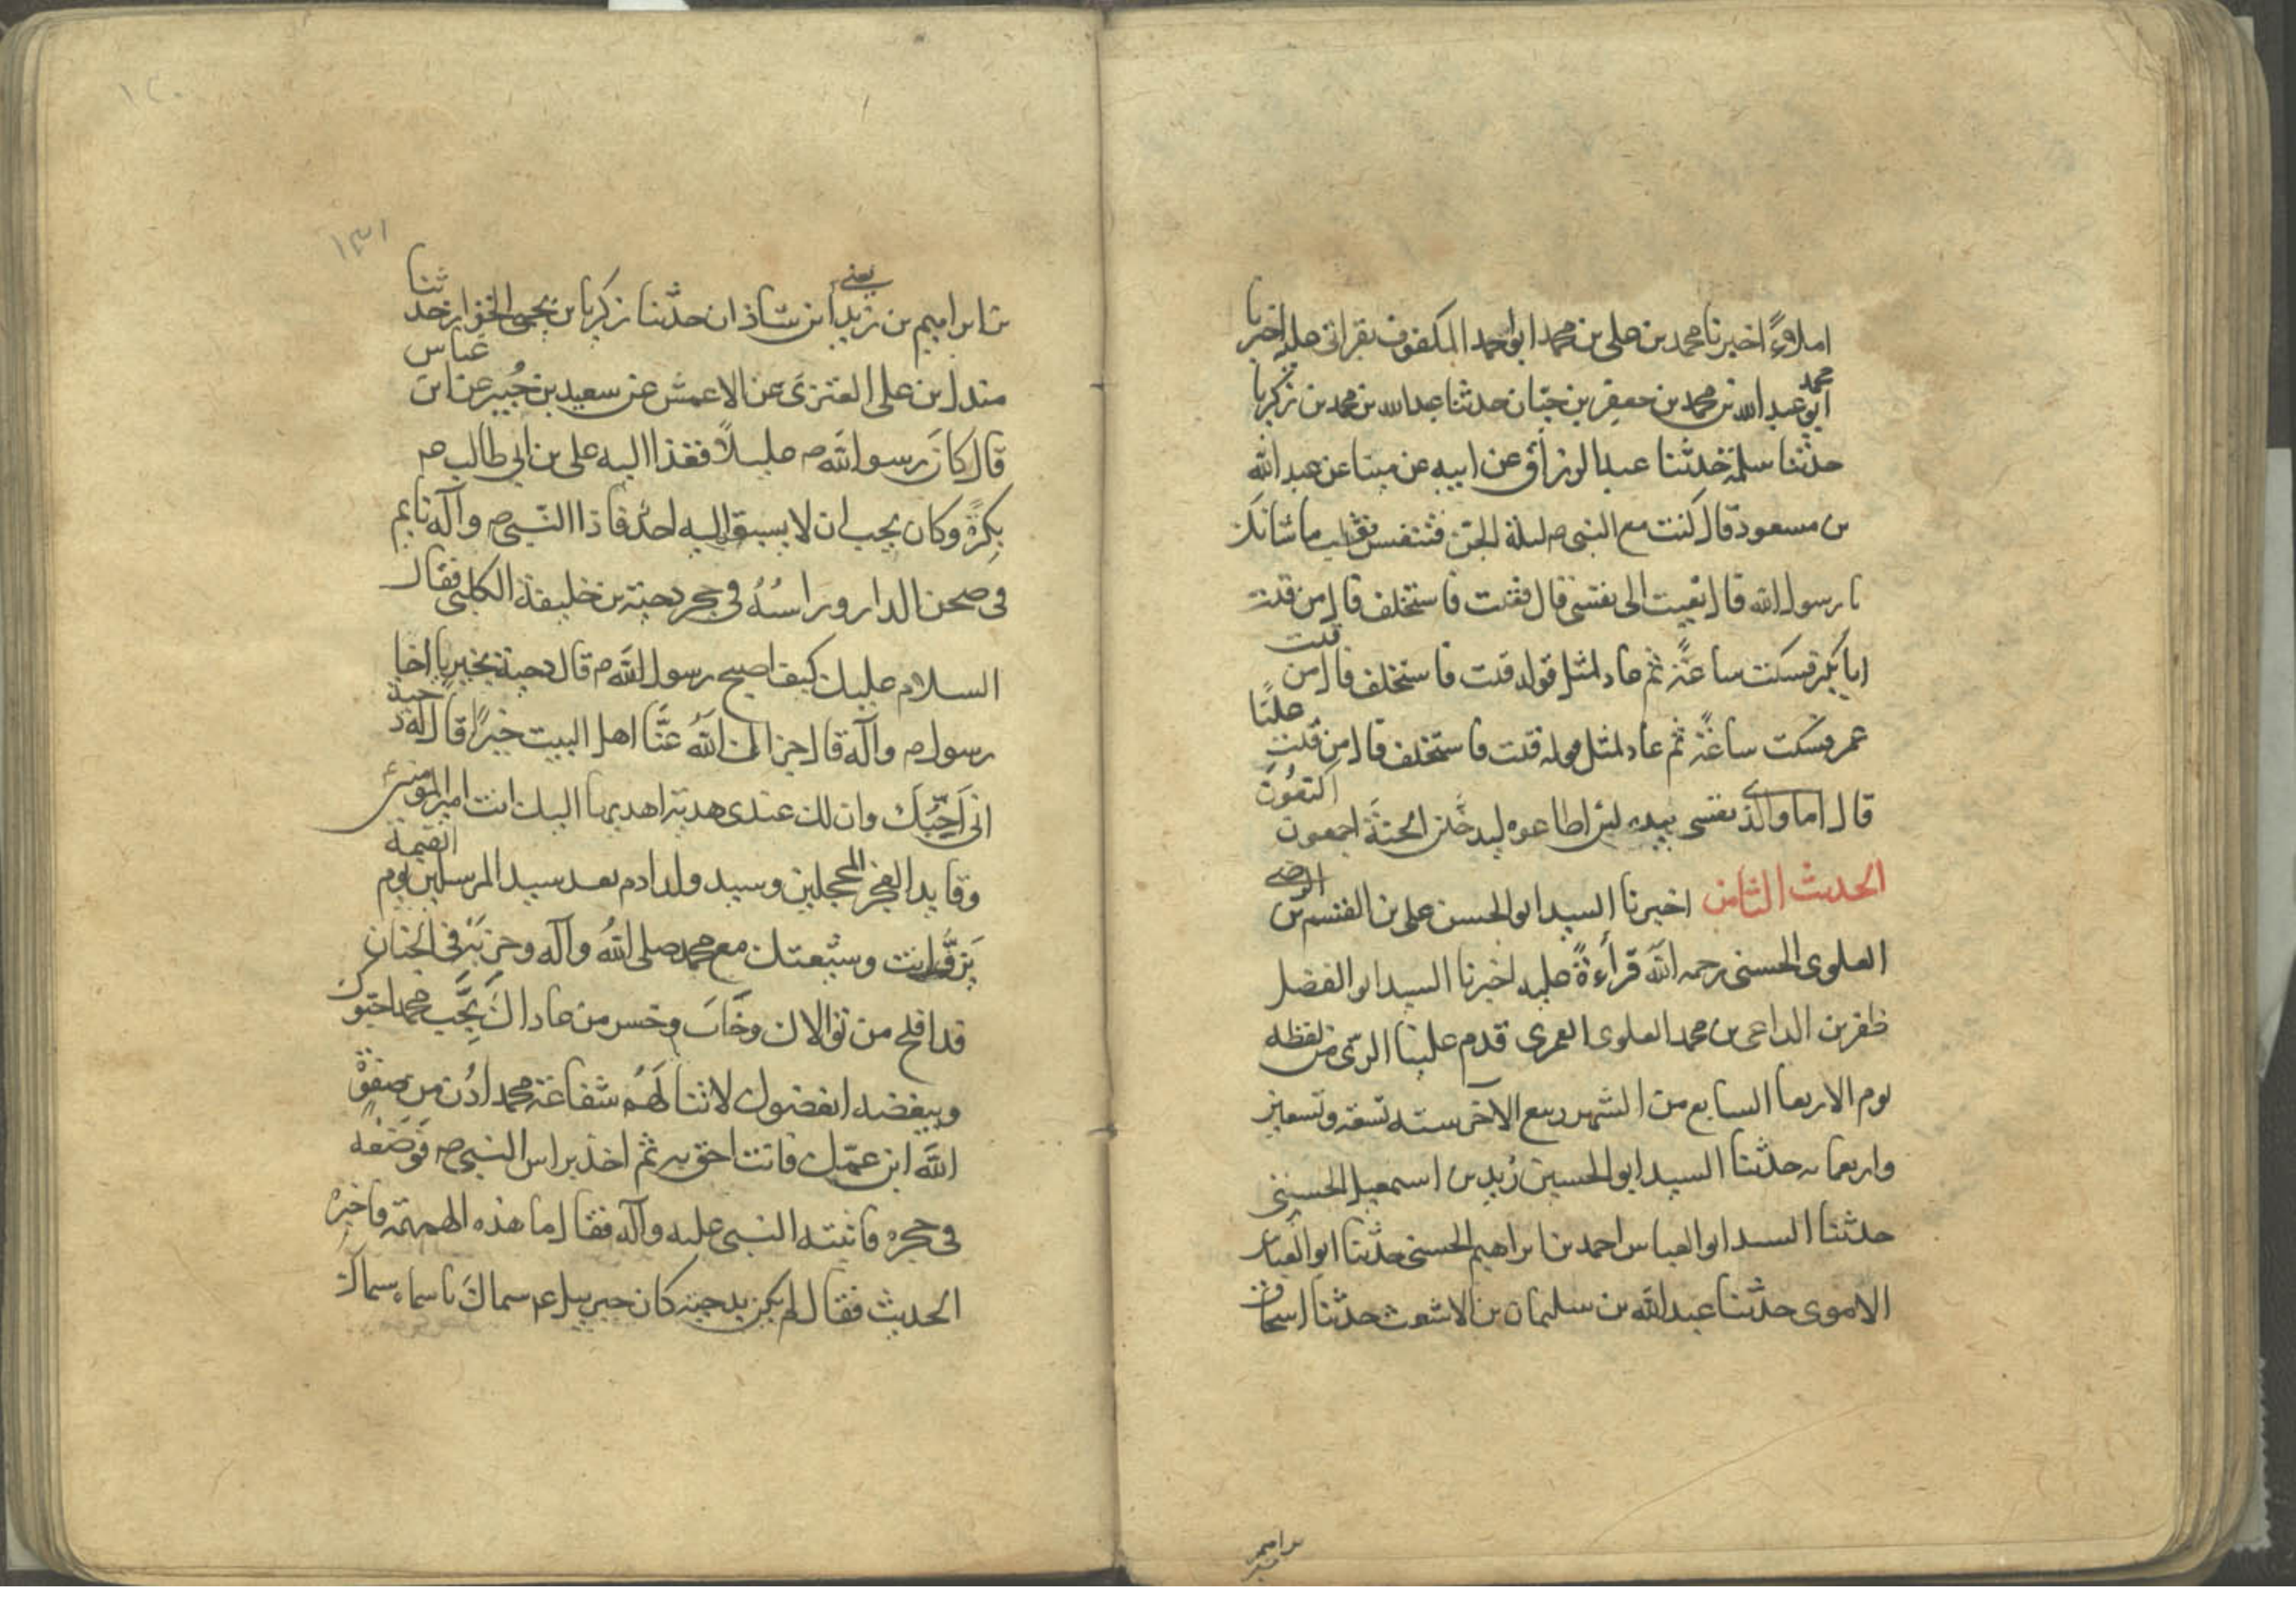 املاءً اخبرنا محمد بن علی بن محمد ابو احمد المکفوف بقراتی علیه اخبرنا
محمد
ابو عبد الله بن محمد بن جعفر بن حبّان حدثنا عبد الله بن محمد بن زکریا
حدثنا سلمة حدثنا عبد الرزاق عن ابیه عن مینا عن عبد الله
بن مسعود قال کنت مع النبی ص لیلة الجن فتنفس فقلت ما شانک
یا رسول الله قال نعیت الی نفسی قال فقلت فاستخلف قال من قلت
ابا بکر فسکت ساعة ثم عاد لمثل قوله قلت فاستخلف قال من قلت
عمر فسکت ساعة ثم عاد لمثل قوله قلت فاستخلف قال من قلت علیًا
قال اما والذی نفسی بیده لئن اطاعوه لیدخلن الجنة اجمعون اکتعون
الحدیث الثامن اخبرنا السید ابو الحسن علی بن القسم بن الرضی
العلوی الحسنی رحمه الله قرأءةً علیه اخبرنا السید ابو الفضل
ظفر بن الداعی بن محمد العلوی العمری قدم علینا الری من لفظه
یوم الاربعا السابع من الشهر ربیع الآخر سنه تسعة وتسعین
واربعمایه حدثنا السید ابو الحسین زید بن اسمعیل الحسینی
حدثنا السید ابو العباس احمد بن ابراهیم الحسنی حدثنا ابو العباس
الاموی حدثنا عبد الله بن سلیمان بن الاشعث حدثنا اسحاق
بن ابراهیم
١٣١
بن ابراهیم بن زید یعنی ابن شاذان حدثنا زکریا بن یحیی الخزاز حدثنا
مندل بن علی العنزی عن الاعمش عن سعید بن جُبیر عن ابن عباس
قال کان رسول الله ص علیلاً فغدا الیه علی بن ابی طالب ع
بکرةً وکان یحب ان لا یسبق الیه احدٌ فاذا النبی ص وآله نایم
فی صحن الدار ورأسُهُ فی حجر دحیة بن خلیفة الکلبی فقال
السلام علیک کیف اصبح رسول الله ص قال دحیة بخیر یا اخا
رسول ص وآله قال جزاک اللهُ عنَّا اهل البیت خیرًا قال له دحیة
انی اُحِبُّکَ وان لک عندی هدیة اهدیها الیک انت امیر المومنین
وقاید الغر المحجلین وسید ولد ادم بعد سید المرسلین یوم القیمة
تزفُّ انت وشیعتک مع محمد صلی اللهُ وآله وحزبه فی الجنان
قد افلح من توالاک وخَابَ وخسر من عاداکَ بِحُبِّ محمد احبوک
وببغضه ابغضوک لا تنالَهُم شفاعة محمد اُدْن من صفوةِ
الله ابن عمّک فانت احق به ثم اخذ براس النبی ص فَوَضَعَه
فی حجره فانتبه النبی علیه وآله فقال ما هذه الهمهمة فاخبره
الحدیث فقال لم یکن بدحیة کان جبریل ع سماکَ باسماء سماک